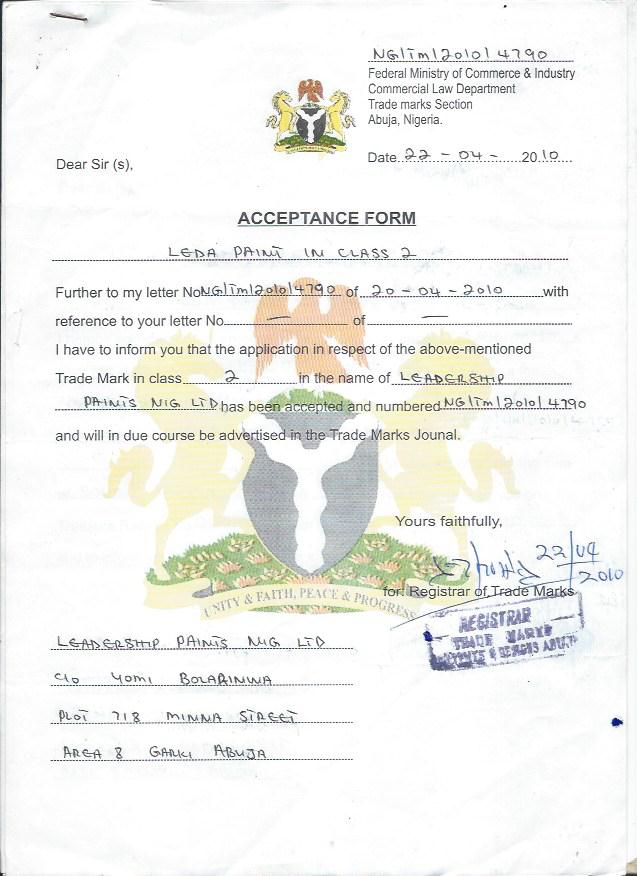 NG/Tm/2010/4790
Federal Ministry of Commerce & Industry
Commercial Law Department
Trade marks Section
Abuja, Nigeria.
Date 22 - 04 - 2010
Dear Sir (s),
ACCEPTANCE FORM
LEDA PAINT IN CLASS 2
Further to my letter No NG/Tm/2010/4790 of 20 - 04 - 2010 with
reference to your letter No. — of —
I have to inform you that the application in respect of the above-mentioned
Trade Mark in class 2 in the name of LEADERSHIP
PAINTS NIG LTD has been accepted and numbered NG/Tm/2010/4790
and will in due course be advertised in the Trade Marks Jounal.
Yours faithfully,
22/04
2010
for: Registrar of Trade Marks
UNITY & FAITH, PEACE & PROGRESS
REGISTRAR
TRADE MARKS
& DESIGNS ABUJA
LEADERSHIP PAINTS NIG LTD
C/o YOMI BOLARINWA
PLOT 718 MINNA STREET
AREA 8 GARKI ABUJA